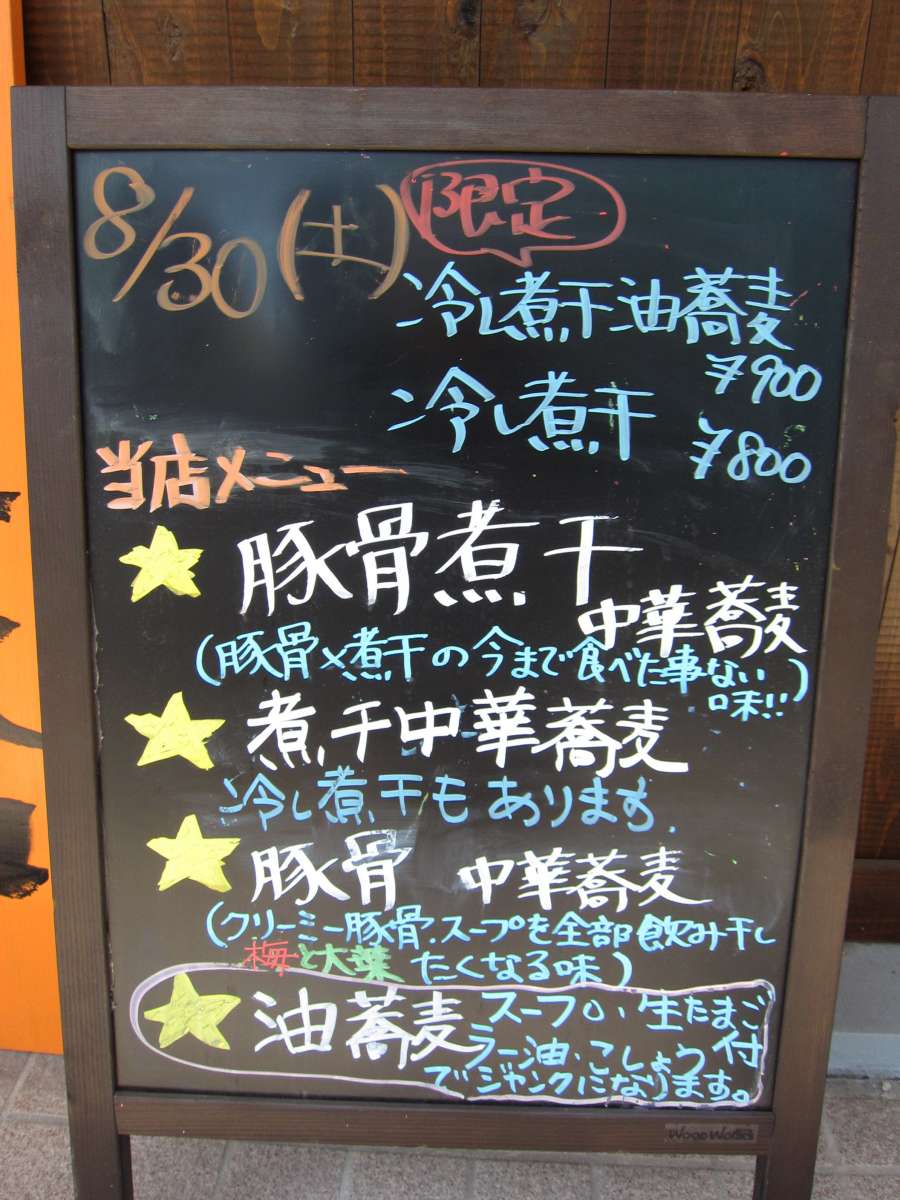 8/30(土)
限定
冷し煮干油蕎麦
¥900
冷し煮干
¥800
当店メニュー
豚骨煮干
中華蕎麦
(豚骨×煮干の今まで食べた事ない
味!!)
煮干中華蕎麦
冷し煮干もあります.
豚骨 中華蕎麦
(クリーミー豚骨.スープを全部飲み干し
たくなる味)
梅と大葉
油蕎麦
スープ、生たまご
付
ラー油、こしょう
でジャンクになります。
WOOD WORK